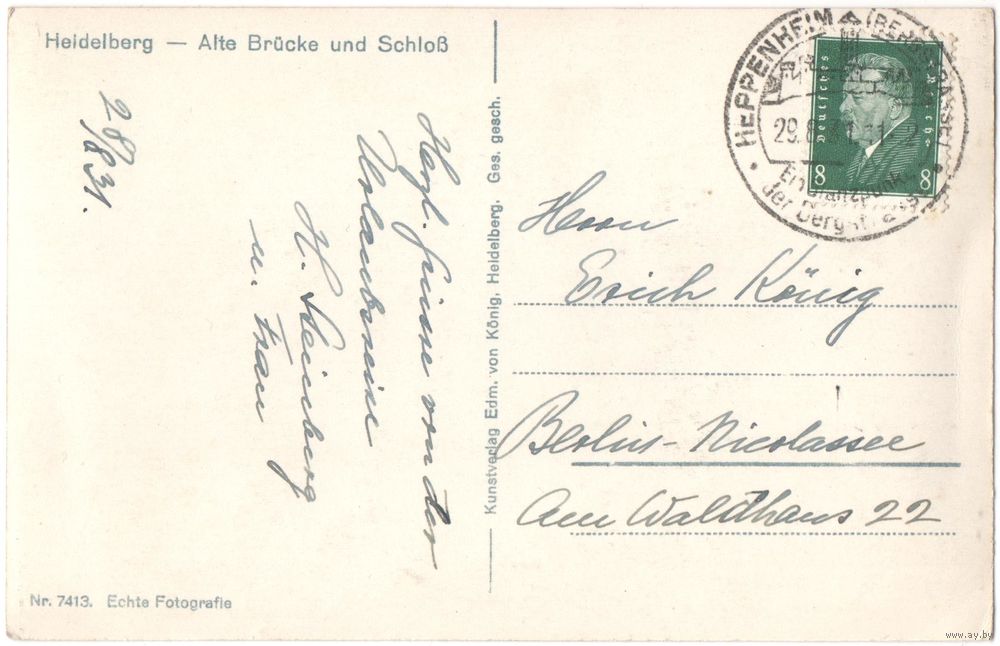 Heidelberg — Alte Brücke und Schloß
28/8 31.
Herzl. Grüsse von der
Urlaubsreise
H. Steinberg
u. Frau
Nr. 7413. Echte Fotografie
Kunstverlag Edm. von König, Heidelberg. Ges. gesch.
HEPPENHEIM (BERGSTRASSE)
29.8.31
der Bergstraße
Deutsches Reich
8 8
Herrn
Erich König
Berlin-Nicolassee
Am Waldhaus 22
www.ay.by